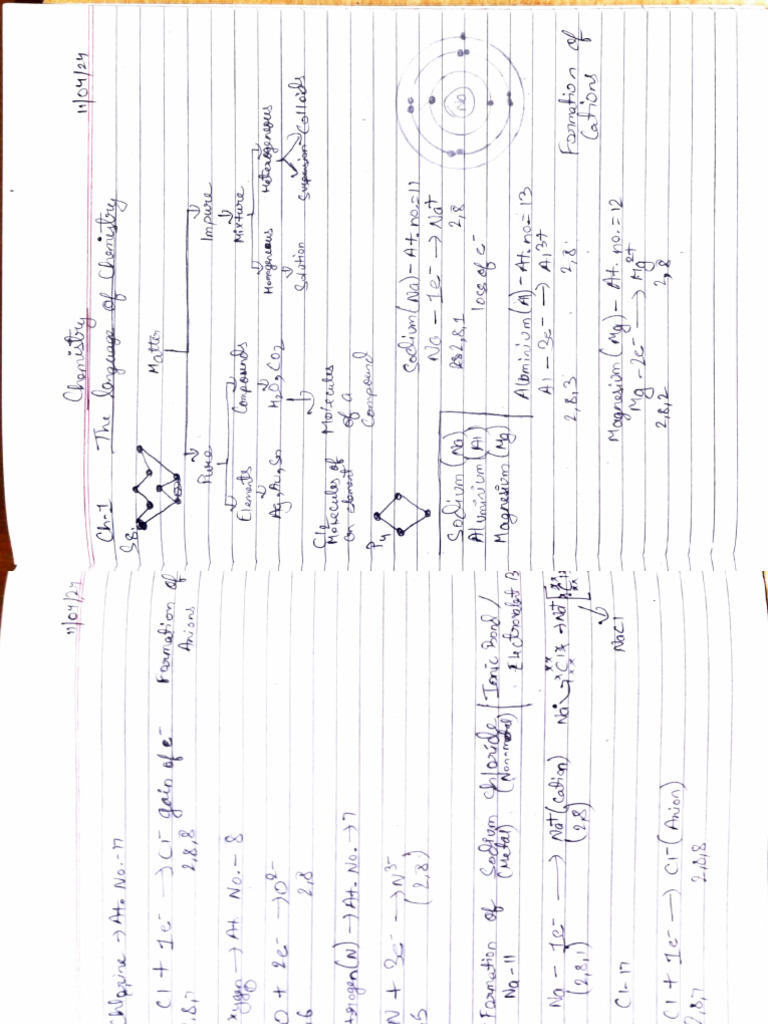 11/04/24
Chemistry
Ch-1 The language of Chemistry
Matter
S8
Pure
Impure
Elements
Compounds
Mixture
Ag, Au, Sn
H2O, CO2
Homogeneous
Heterogeneous
Solution
Suspension
Colloids
Cl2
Molecules of
an element
Molecules
of a
Compound
P4
Sodium (Na)
Aluminium (Al)
Magnesium (Mg)
Na
Sodium (Na) - At. no. = 11
Na - 1e- → Na+
2,8,1 2,8
loss of e-
Aluminium (Al) - At. no. = 13
Al - 3e- → Al3+
2,8,3 2,8
Formation of
Cations
Magnesium (Mg) - At. no. = 12
Mg - 2e- → Mg2+
2,8,2 2,8
11/04/24
Chlorine → At. No. - 17
Cl + 1e- → Cl- gain of e- Formation of
Anions
2,8,7 2,8,8
xygen → At No. - 8
O + 2e- → O2-
6 2,8
itrogen (N) → At. No. → 7
N + 3e- → N3-
5 (2,8)
Formation of Sodium Chloride / Ionic Bond /
(Metal) (Non-metal) Electrovalent B
Na - 11
Na - 1e- → Na+ (Cation)
(2,8,1) (2,8)
NaCl
Cl - 17
Cl + 1e- → Cl- (Anion)
2,8,7 2,8,8